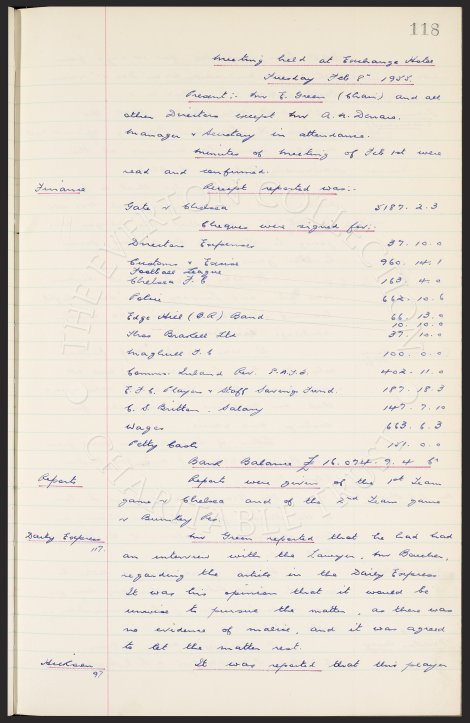 118
Meeting held at Exchange Hotel
Tuesday Feb 8th 1955.
Present:- Mr E. Green (Chair) and all
other Directors except Mr A. H. Denaro.
Manager & Secretary in attendance.
Minutes of Meeting of Feb 1st were
read and confirmed.
Finance
Receipt reported was:-
Gate v Chelsea 5187. 2. 3
Cheques were signed for:-
Directors Expenses 37. 10. 0
Customs & Excise 960. 14. 1
Football League
Chelsea F. C 163. 4. 0
Police 662. 10. 6
Edge Hill (B.R) Band 66. 13. 0
10. 10. 0
Thos Braskell Ltd 37. 10. 0
Maghull F. C 100. 0. 0
Comms. Inland Rev. P.A.Y.E. 402. 11. 0
E. F. C. Players & Staff Savings Fund. 187. 18. 3
C. S. Britton. Salary 147. 7. 10
Wages 663. 6. 3
Petty Cash 151. 0. 0
Bank Balance £ 16.074. 9. 4
Reports
Reports were given of the 1st Team
game v Chelsea and of the 2nd Team game
v Burnley Res
Daily Express
117.
Mr Green reported that he had had
an interview with the Lawyer, Mr
regarding the article in the Daily Express
It was his opinion that it would be
unwise to pursue the matter, as there was
no evidence of malice, and it was agreed
to let the matter rest.
Hickson
97
It was reported that this player
THE EVERTON COLLECTION
CHARITABLE TRUST